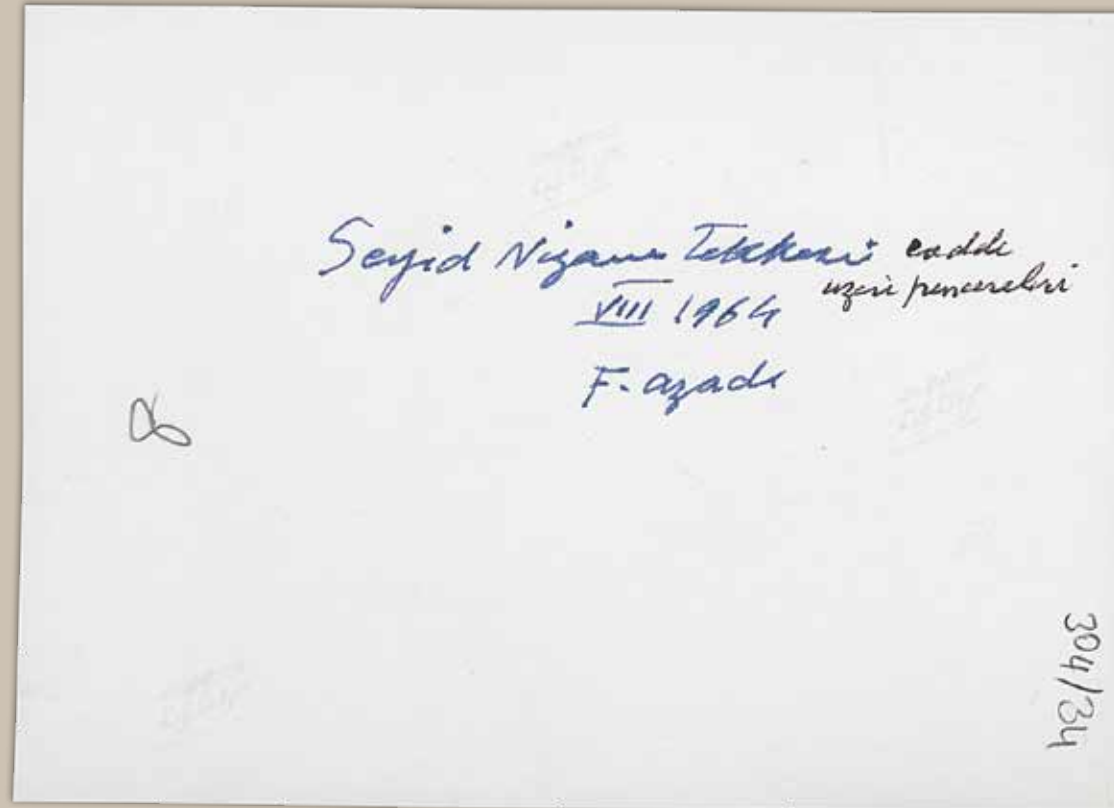 Seyid Nizam Tekkesi cadde
üzeri pencereleri
VIII 1964
F. azade
8
304/34